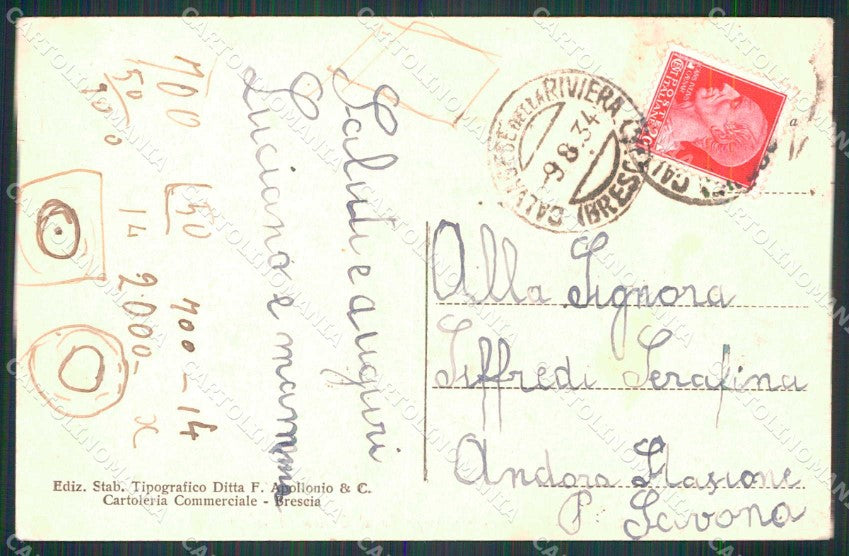 Saluti e auguri
Luciano e mamma
CALVAGESE DELLA RIVIERA (BRESCIA)
9.8.34
Alla Signora
Siffredi Serafina
Andora Stazione
P. Savona
Ediz. Stab. Tipografico Ditta F. Apollonio & C.
Cartoleria Commerciale - Brescia
700
50
150
14
2000-
400-14
x
CARTOLINOMANIA